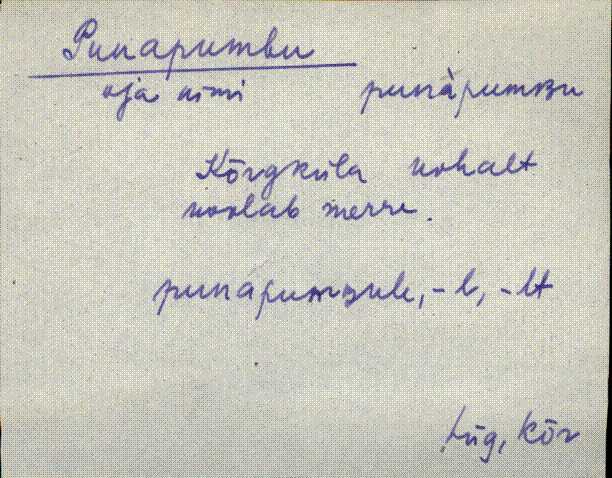 Punapumbu
oja nimi punàpumʙu
Kõrgküla kohalt
voolab merre.
punapumʙule, -l, -lt
Lüg, Kõr